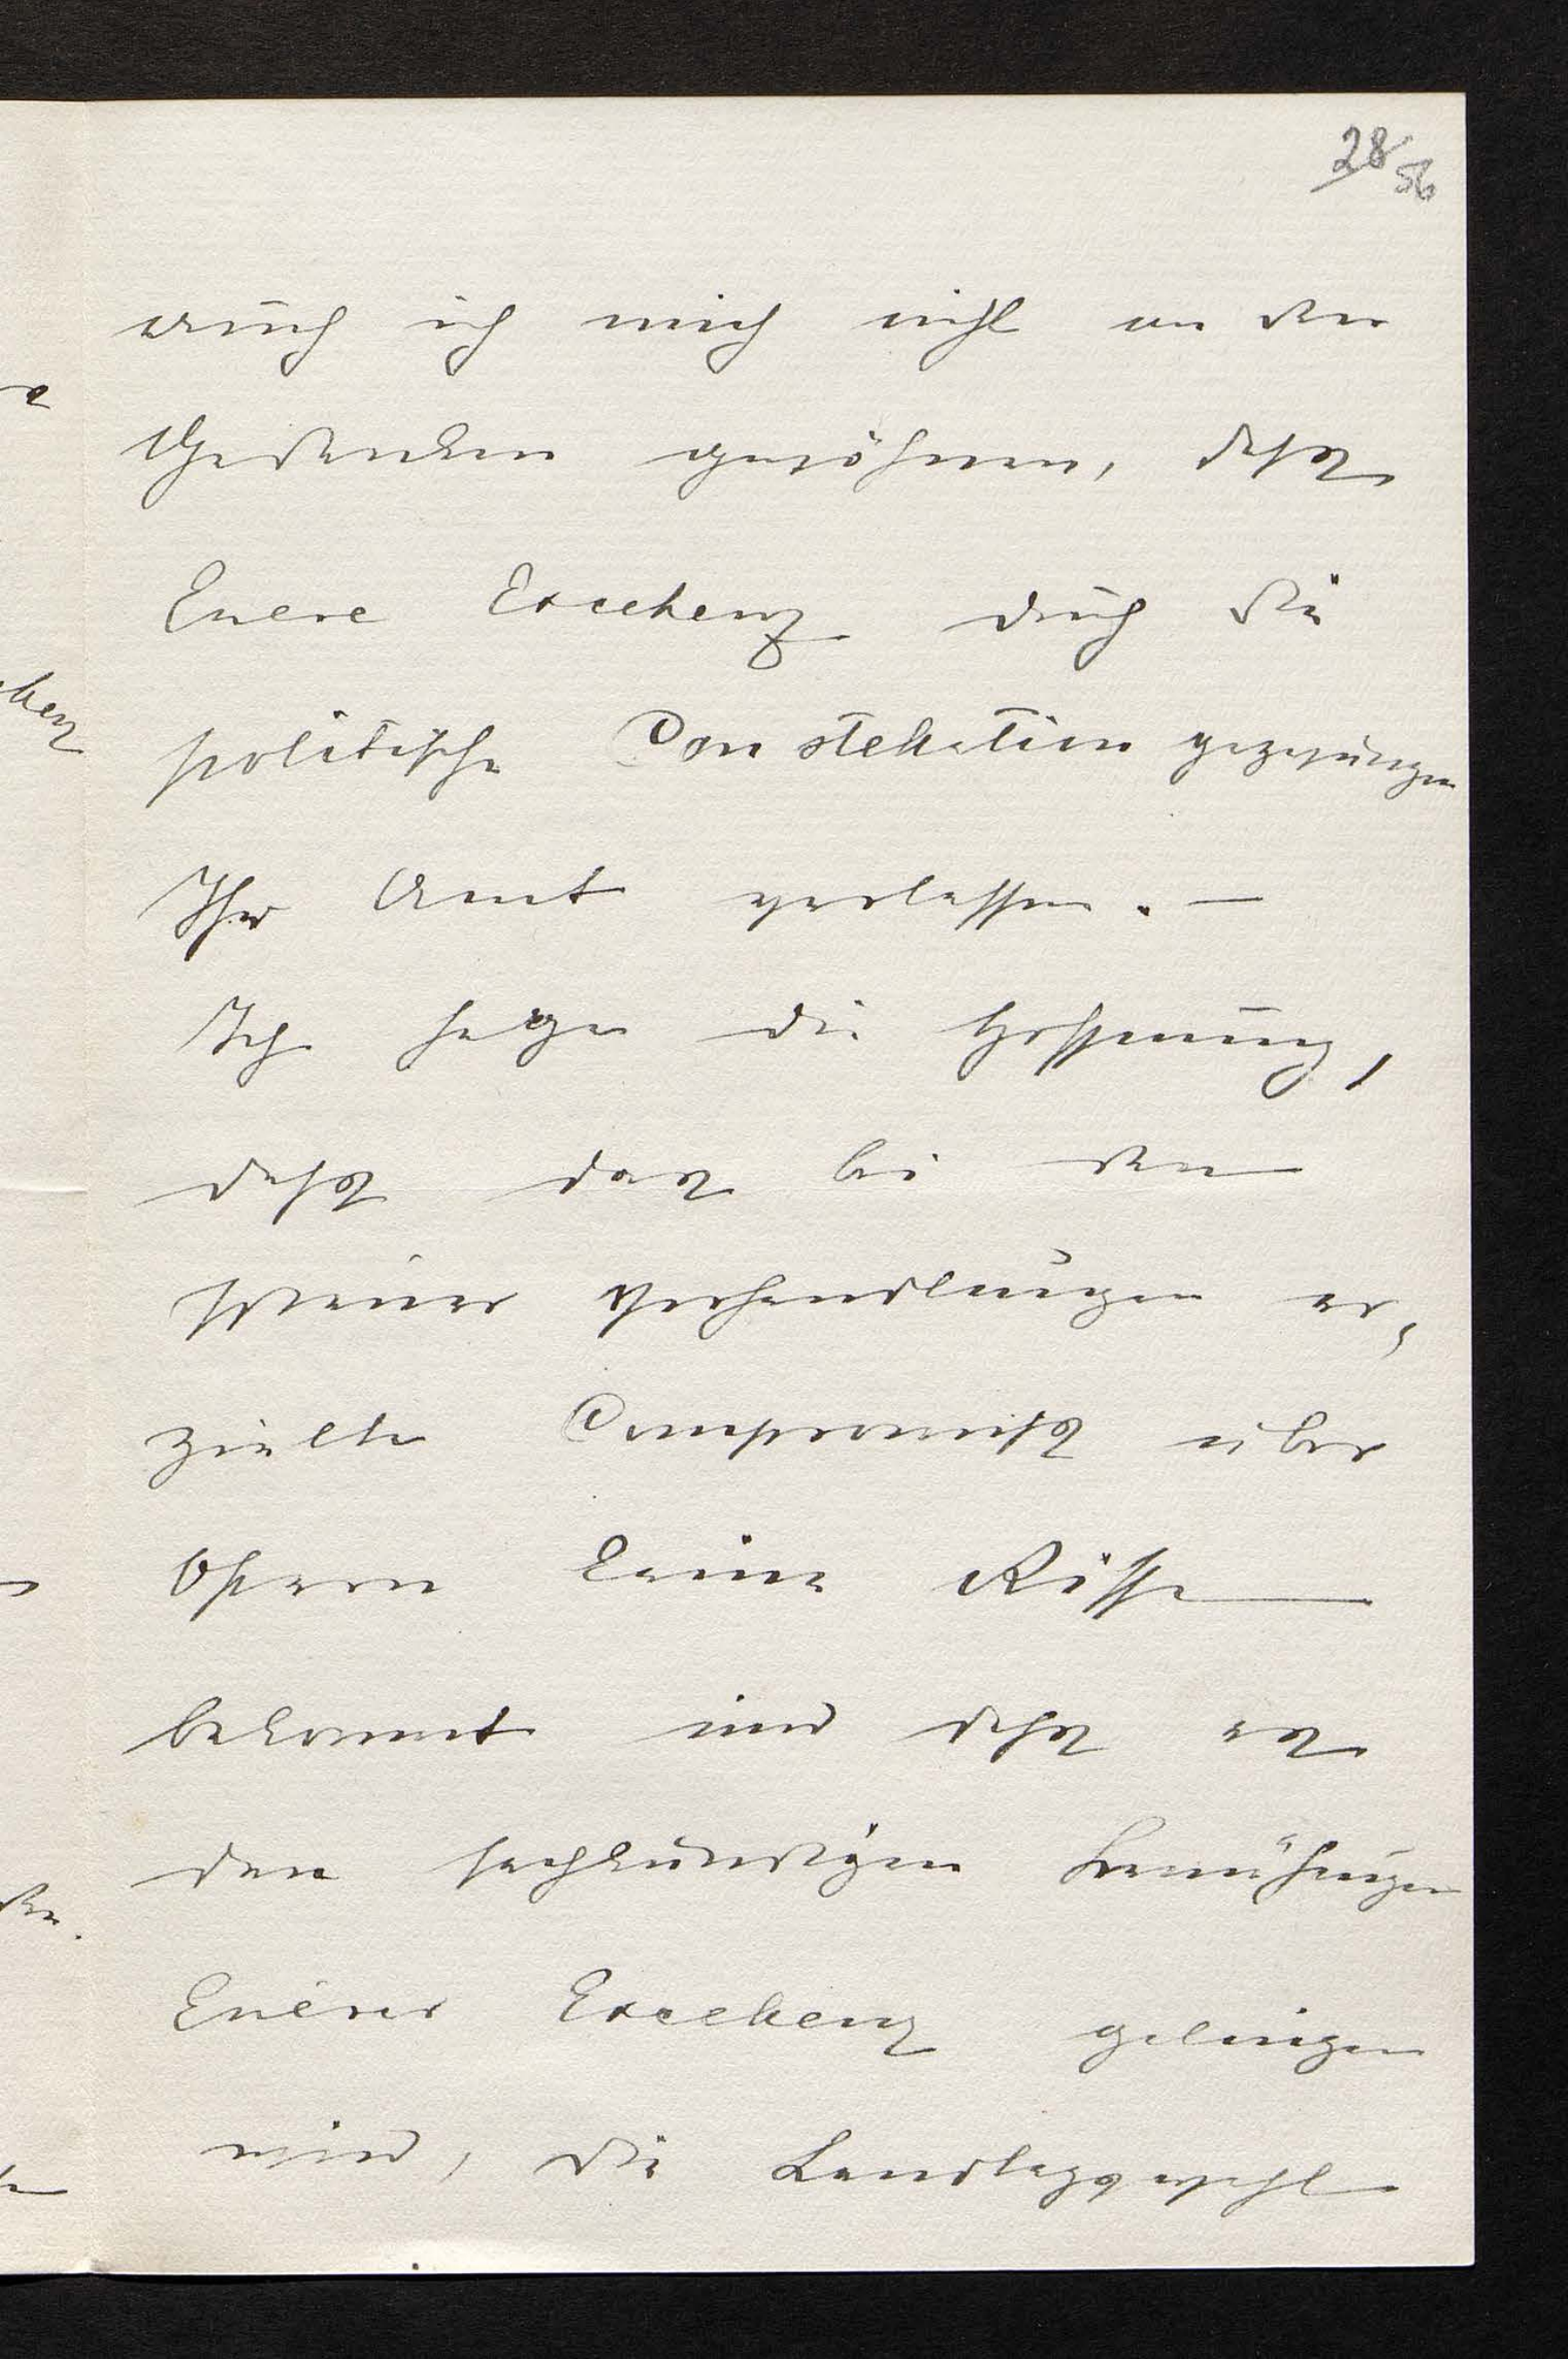 28/56
auch ich mich nicht an den
Gedanken gewöhnen, daß
Euere Excellenz durch die
politische Constellation gezwungen
Ihr Amt verlassen. —
Ich hege die Hoffnung,
daß das bei den
Verhandlungen er,
zielte Compromiß über
Ostern keine Risse
bekommt und daß es
den sachkundigen Bemühungen
Euerer Excellenz gelingen
wird, die Landtagswahl